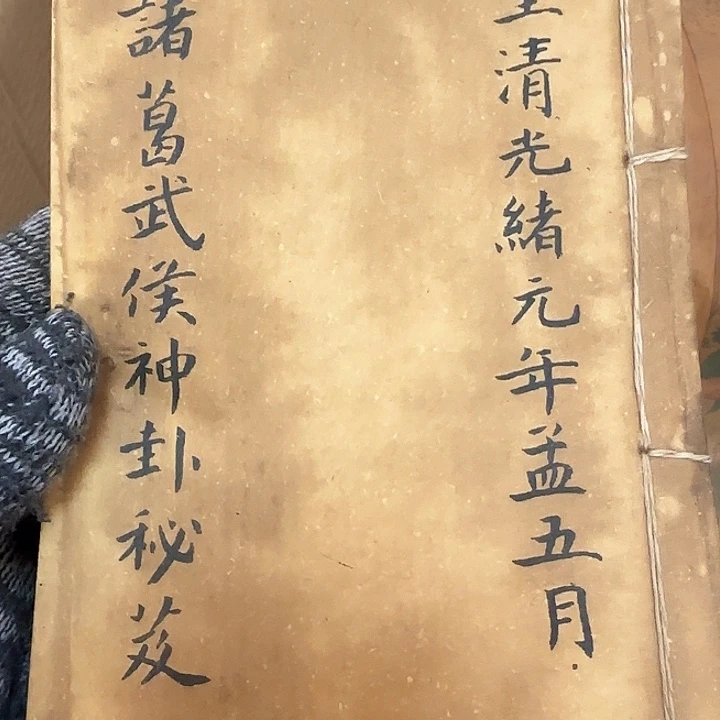 清光緒元年孟五月
諸葛武侯神卦秘芨